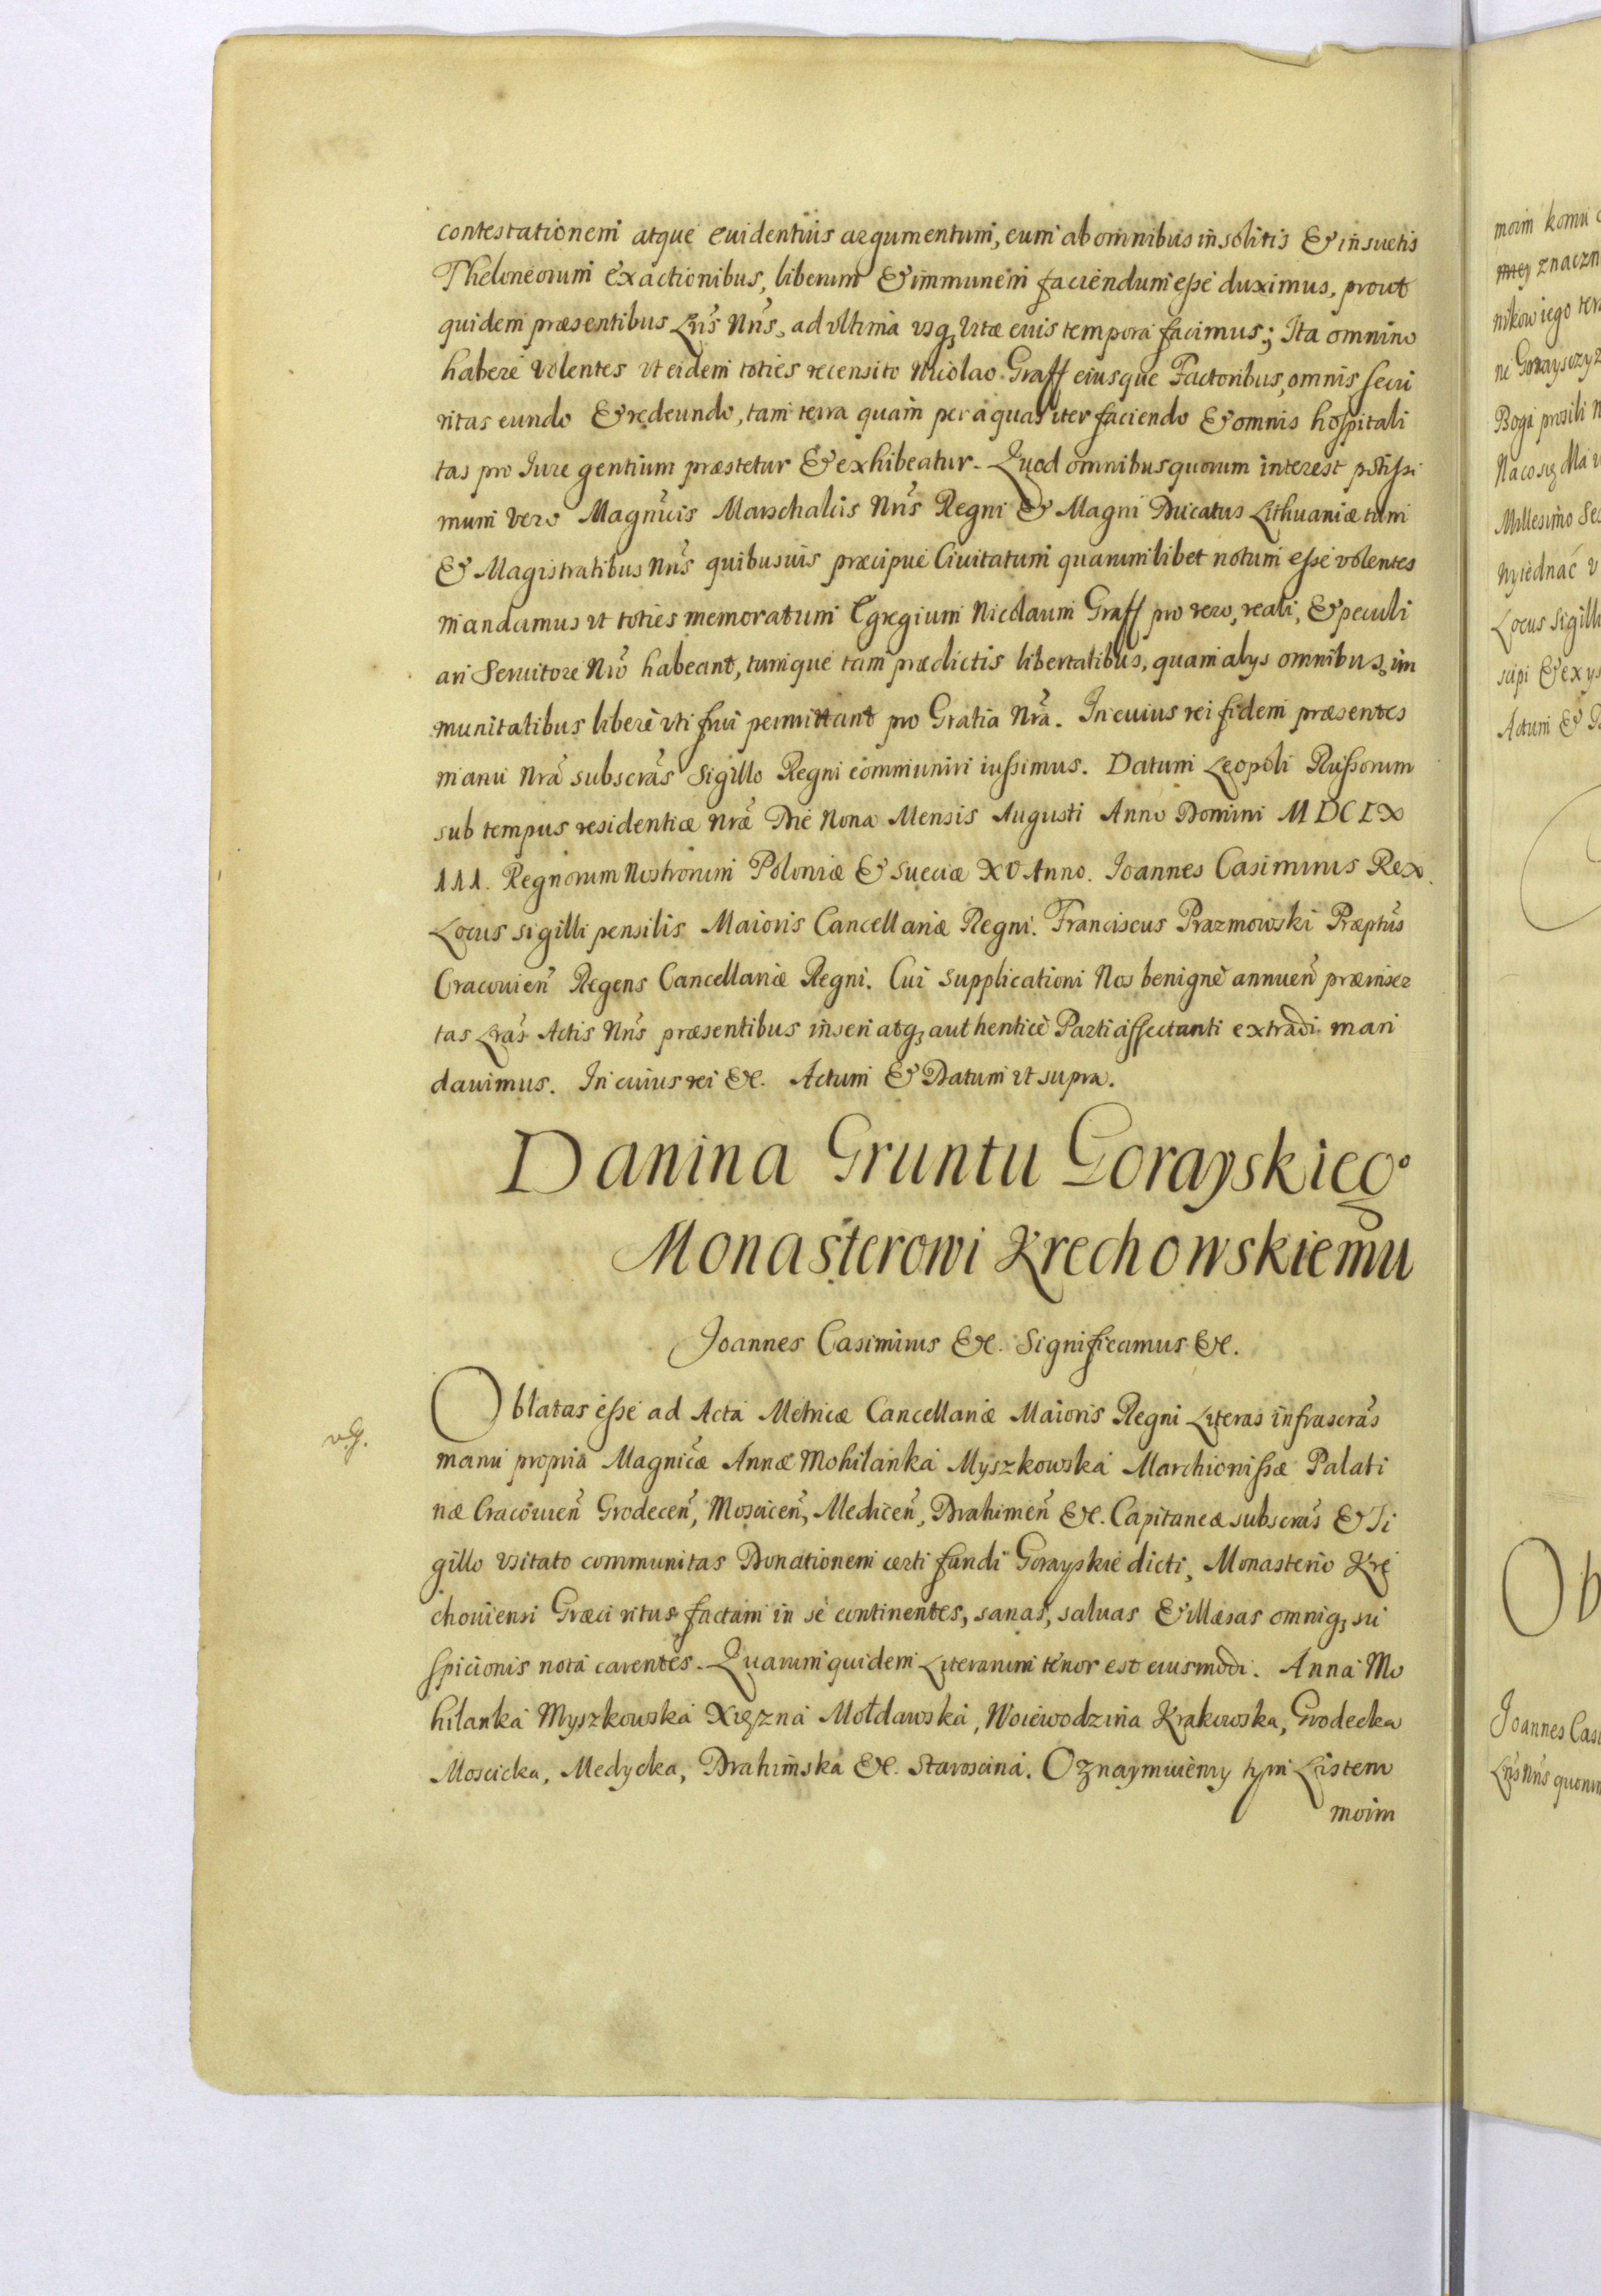 contestationem atque euidentius argumentum, eum ab omnibus insolitis & insuetis
Theloneorum exactionibus, liberum & immunem faciendum esse duximus, prout
quidem præsentibus Lr̃is Nr̃is, ad vltima vsq; vitæ euis tempora facimus; Ita omnino
habere volentes vt eidem toties recensito Nicolao Graff eiusque Factoribus, omnis secu
ritas eundo & redeundo, tam terra quam per aquas iter faciendo & omnis hospitali
tas pro Iure gentium præstetur & exhibeatur. Quod omnibus quorum interest potissi
mum vero Magnificis Marschalcis Nr̃is Regni & Magni Ducatus Lithuaniæ tum
& Magistratibus Nr̃is quibusuis præcipue Ciuitatum quarumlibet notum esse volentes
mandamus vt toties memoratum Egregium Nicolaum Graff pro vero, reali, & peculi
ari Seruitore Nr̃o habeant, tumque tam prædictis libertatibus, quam alys omnibus im
munitatibus libere vti frui permittant pro Gratia Nr̃a. In cuius rei fidem præsentes
manu Nr̃a subscr̃as Sigillo Regni communiri iussimus. Datum Leopoli Russorum
sub tempus residentiæ Nr̃æ Die Nona Mensis Augusti Anno Domini MDCLX
111. Regnorum Nostrorum Poloniæ & Sueciæ XV Anno. Joannes Casimirus Rex.
Locus sigilli pensilis Maioris Cancellariæ Regni. Franciscus Prazmowski Præptũs
Cracouien̄ Regens Cancellariæ Regni. Cui supplicationi Nos benigne annuen̄ præinser
tas Lr̃as Actis Nr̃is præsentibus inseri atq; authentice Parti affectanti extradi man
dauimus. In cuius rei &c. Actum & Datum vt supra.
Danina Gruntu Gorayskiego
Monasterowi Krechowskiemu
Joannes Casimirus &c. Significamus &c.
Oblatas esse ad Acta Metricæ Cancellariæ Maioris Regni Literas infrascr̃as
manu propria Magnicæ Annæ Mohilanka Myszkowska Marchionissæ Palati
næ Cracouien̄ Grodecen̄, Moscicen̄, Medicen̄, Drahimen̄ &c. Capitaneæ subscr̃as & Si
gillo vsitato communitas Donationem certi fundi Gorayskie dicti, Monasterio Kre
chouiensi Græci ritus factam in se continentes, sanas, saluas & illæsas omniq; su
spicionis nota carentes. Quarum quidem Literarum tenor est eiusmodi. Anna Mo
hilanka Myszkowska Xiężna Mołdawska, Woiewodzina Krakowska, Grodecka
Moscicka, Medycka, Drahimska &c. Staroscina. Oznaymuiemy tym Listem
moim